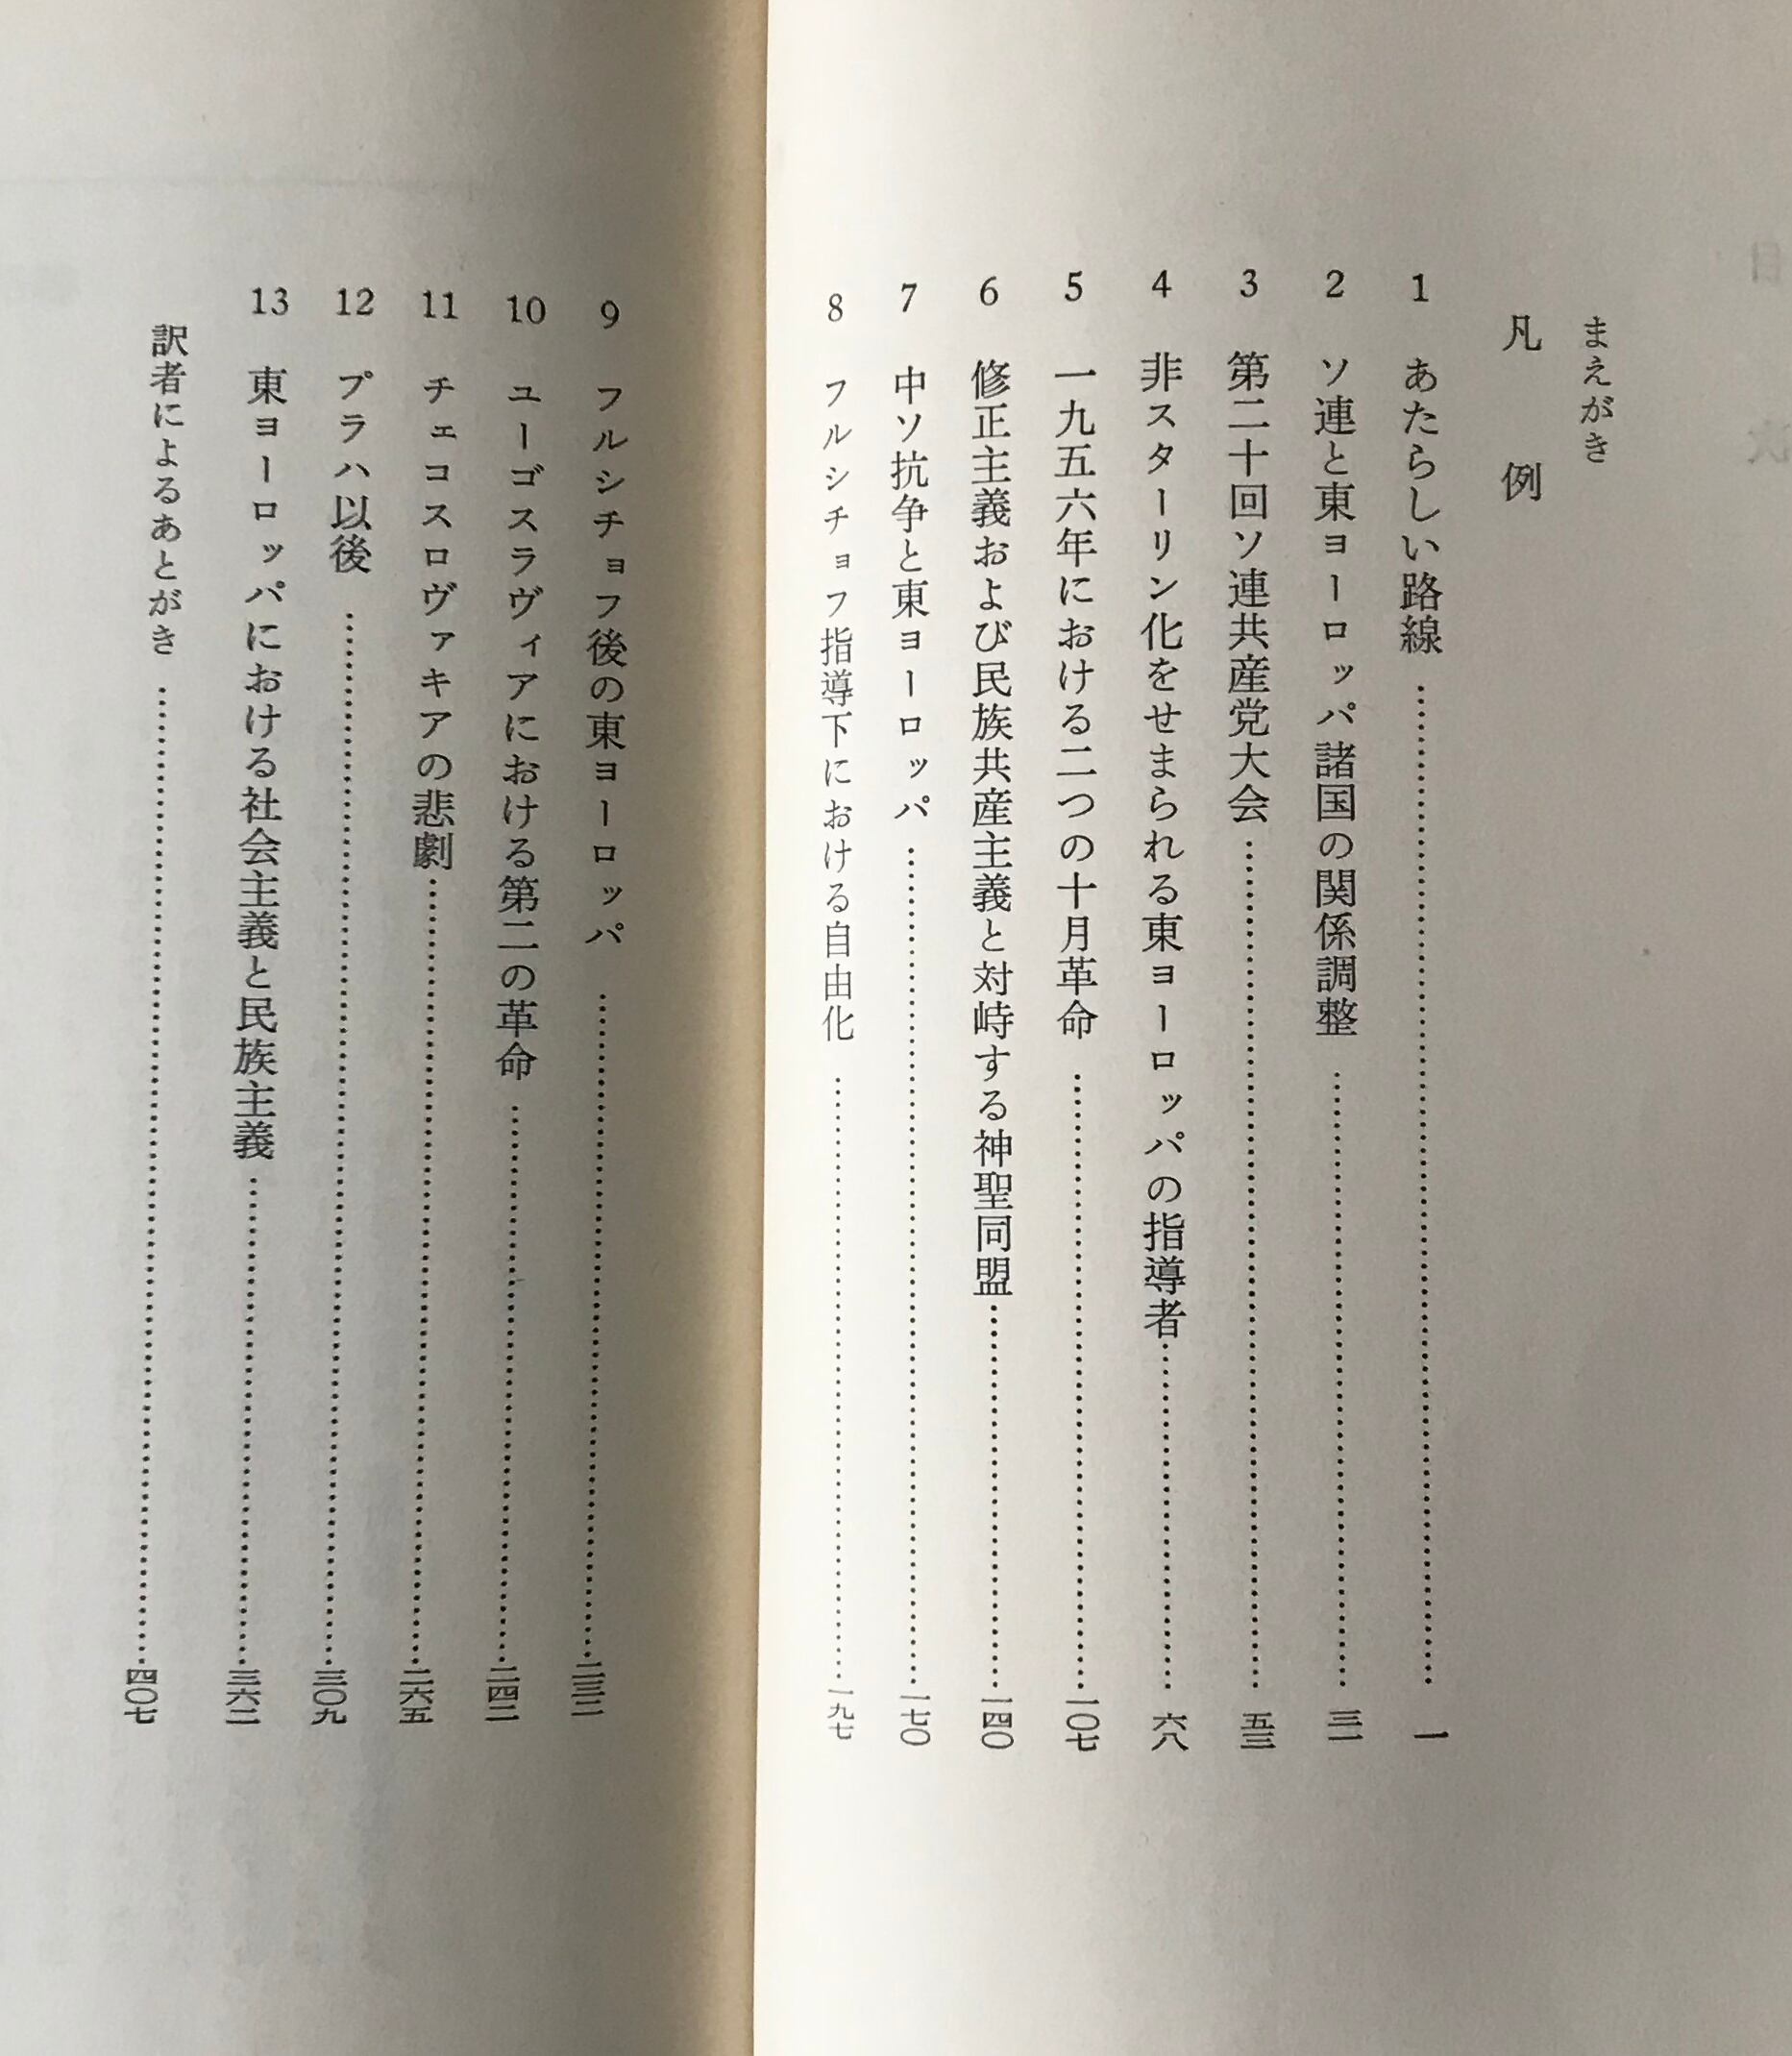 まえがき
凡 例
1 あたらしい路線 …… 一
2 ソ連と東ヨーロッパ諸国の関係調整 …… 三一
3 第二十回ソ連共産党大会 …… 五三
4 非スターリン化をせまられる東ヨーロッパの指導者 …… 六八
5 一九五六年における二つの十月革命 …… 一〇七
6 修正主義および民族共産主義と対峙する神聖同盟 …… 一四〇
7 中ソ抗争と東ヨーロッパ …… 一七〇
8 フルシチョフ指導下における自由化 …… 一九七
9 フルシチョフ後の東ヨーロッパ …… 二三二
10 ユーゴスラヴィアにおける第二の革命 …… 二四二
11 チェコスロヴァキアの悲劇 …… 二六五
12 プラハ以後 …… 三〇九
13 東ヨーロッパにおける社会主義と民族主義 …… 三六二
訳者によるあとがき …… 四〇七